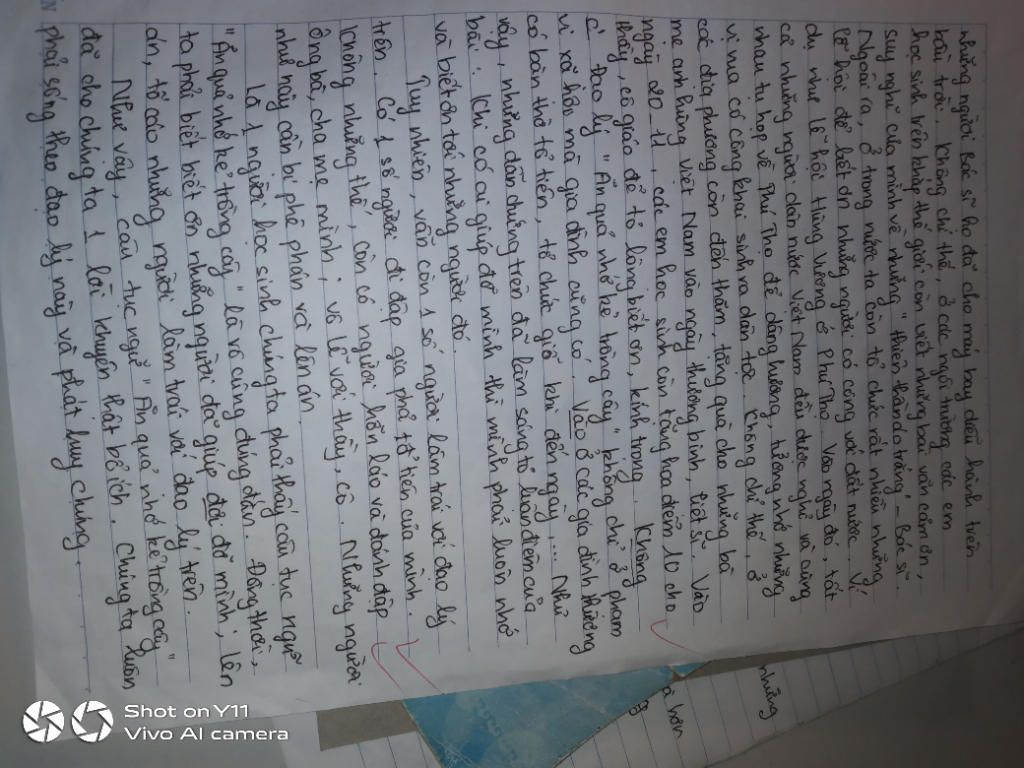 những người Bác sĩ họ đã cho máy bay diễu hành trên
bầu trời. Không chỉ thế, ở các ngôi trường các em
học sinh trên khắp thế giới còn viết những bài văn cảm ơn,
suy nghĩ của mình về những "thiên thần áo trắng" - Bác sĩ.
Ngoài ra, ở trong nước ta còn tổ chức rất nhiều những
lễ hội để biết ơn những người có công với đất nước. Ví
dụ như lễ hội Hùng Vương ở Phú Thọ. Vào ngày đó, tất
cả những người dân nước Việt Nam đều được nghỉ và cùng
nhau tụ họp về Phú Thọ để dâng hương, tưởng nhớ những
vị vua có công khai sinh ra dân tộc. Không chỉ thế, ở
các địa phương còn đến thăm, tặng quà cho những bà
mẹ anh hùng Việt Nam vào ngày thương binh, liệt sĩ. Vào
ngày 20-11, các em học sinh còn tặng hoa điểm 10 cho
thầy, cô giáo để tỏ lòng biết ơn, kính trọng. Không
c' Đạo lý "Ăn quả nhớ kẻ trồng cây" không chỉ ở phạm
vi xã hội mà gia đình cũng có. Vào ở các gia đình thường
có bàn thờ tổ tiên, tổ chức giỗ khi đến ngày,... Như
vậy, những dẫn chứng trên đã làm sáng tỏ luận điểm của
bài: Khi có ai giúp đỡ mình thì mình phải luôn nhớ
và biết ơn tới những người đó.
Tuy nhiên, vẫn còn 1 số người làm trái với đạo lý
trên. Có 1 số người đi đập gia phả tổ tiên của mình.
Không những thế, còn có người hỗn láo và đánh đập
ông bà, cha mẹ mình; vô lễ với thầy, cô. Những người
như này cần bị phê phán và lên án.
Là 1 người học sinh chúng ta phải thấy câu tục ngữ
"Ăn quả nhớ kẻ trồng cây" là vô cùng đúng đắn. Đồng thời,
ta phải biết biết ơn những người đã giúp đỡi đỡ mình; lên
án, tố cáo những người làm trái với đạo lý trên.
Như vậy, câu tục ngữ "Ăn quả nhớ kẻ trồng cây"
đã cho chúng ta 1 lời khuyên thật bổ ích. Chúng ta luôn
phải sống theo đạo lý này và phát huy chúng.
những
Shot on Y11
Vivo AI camera